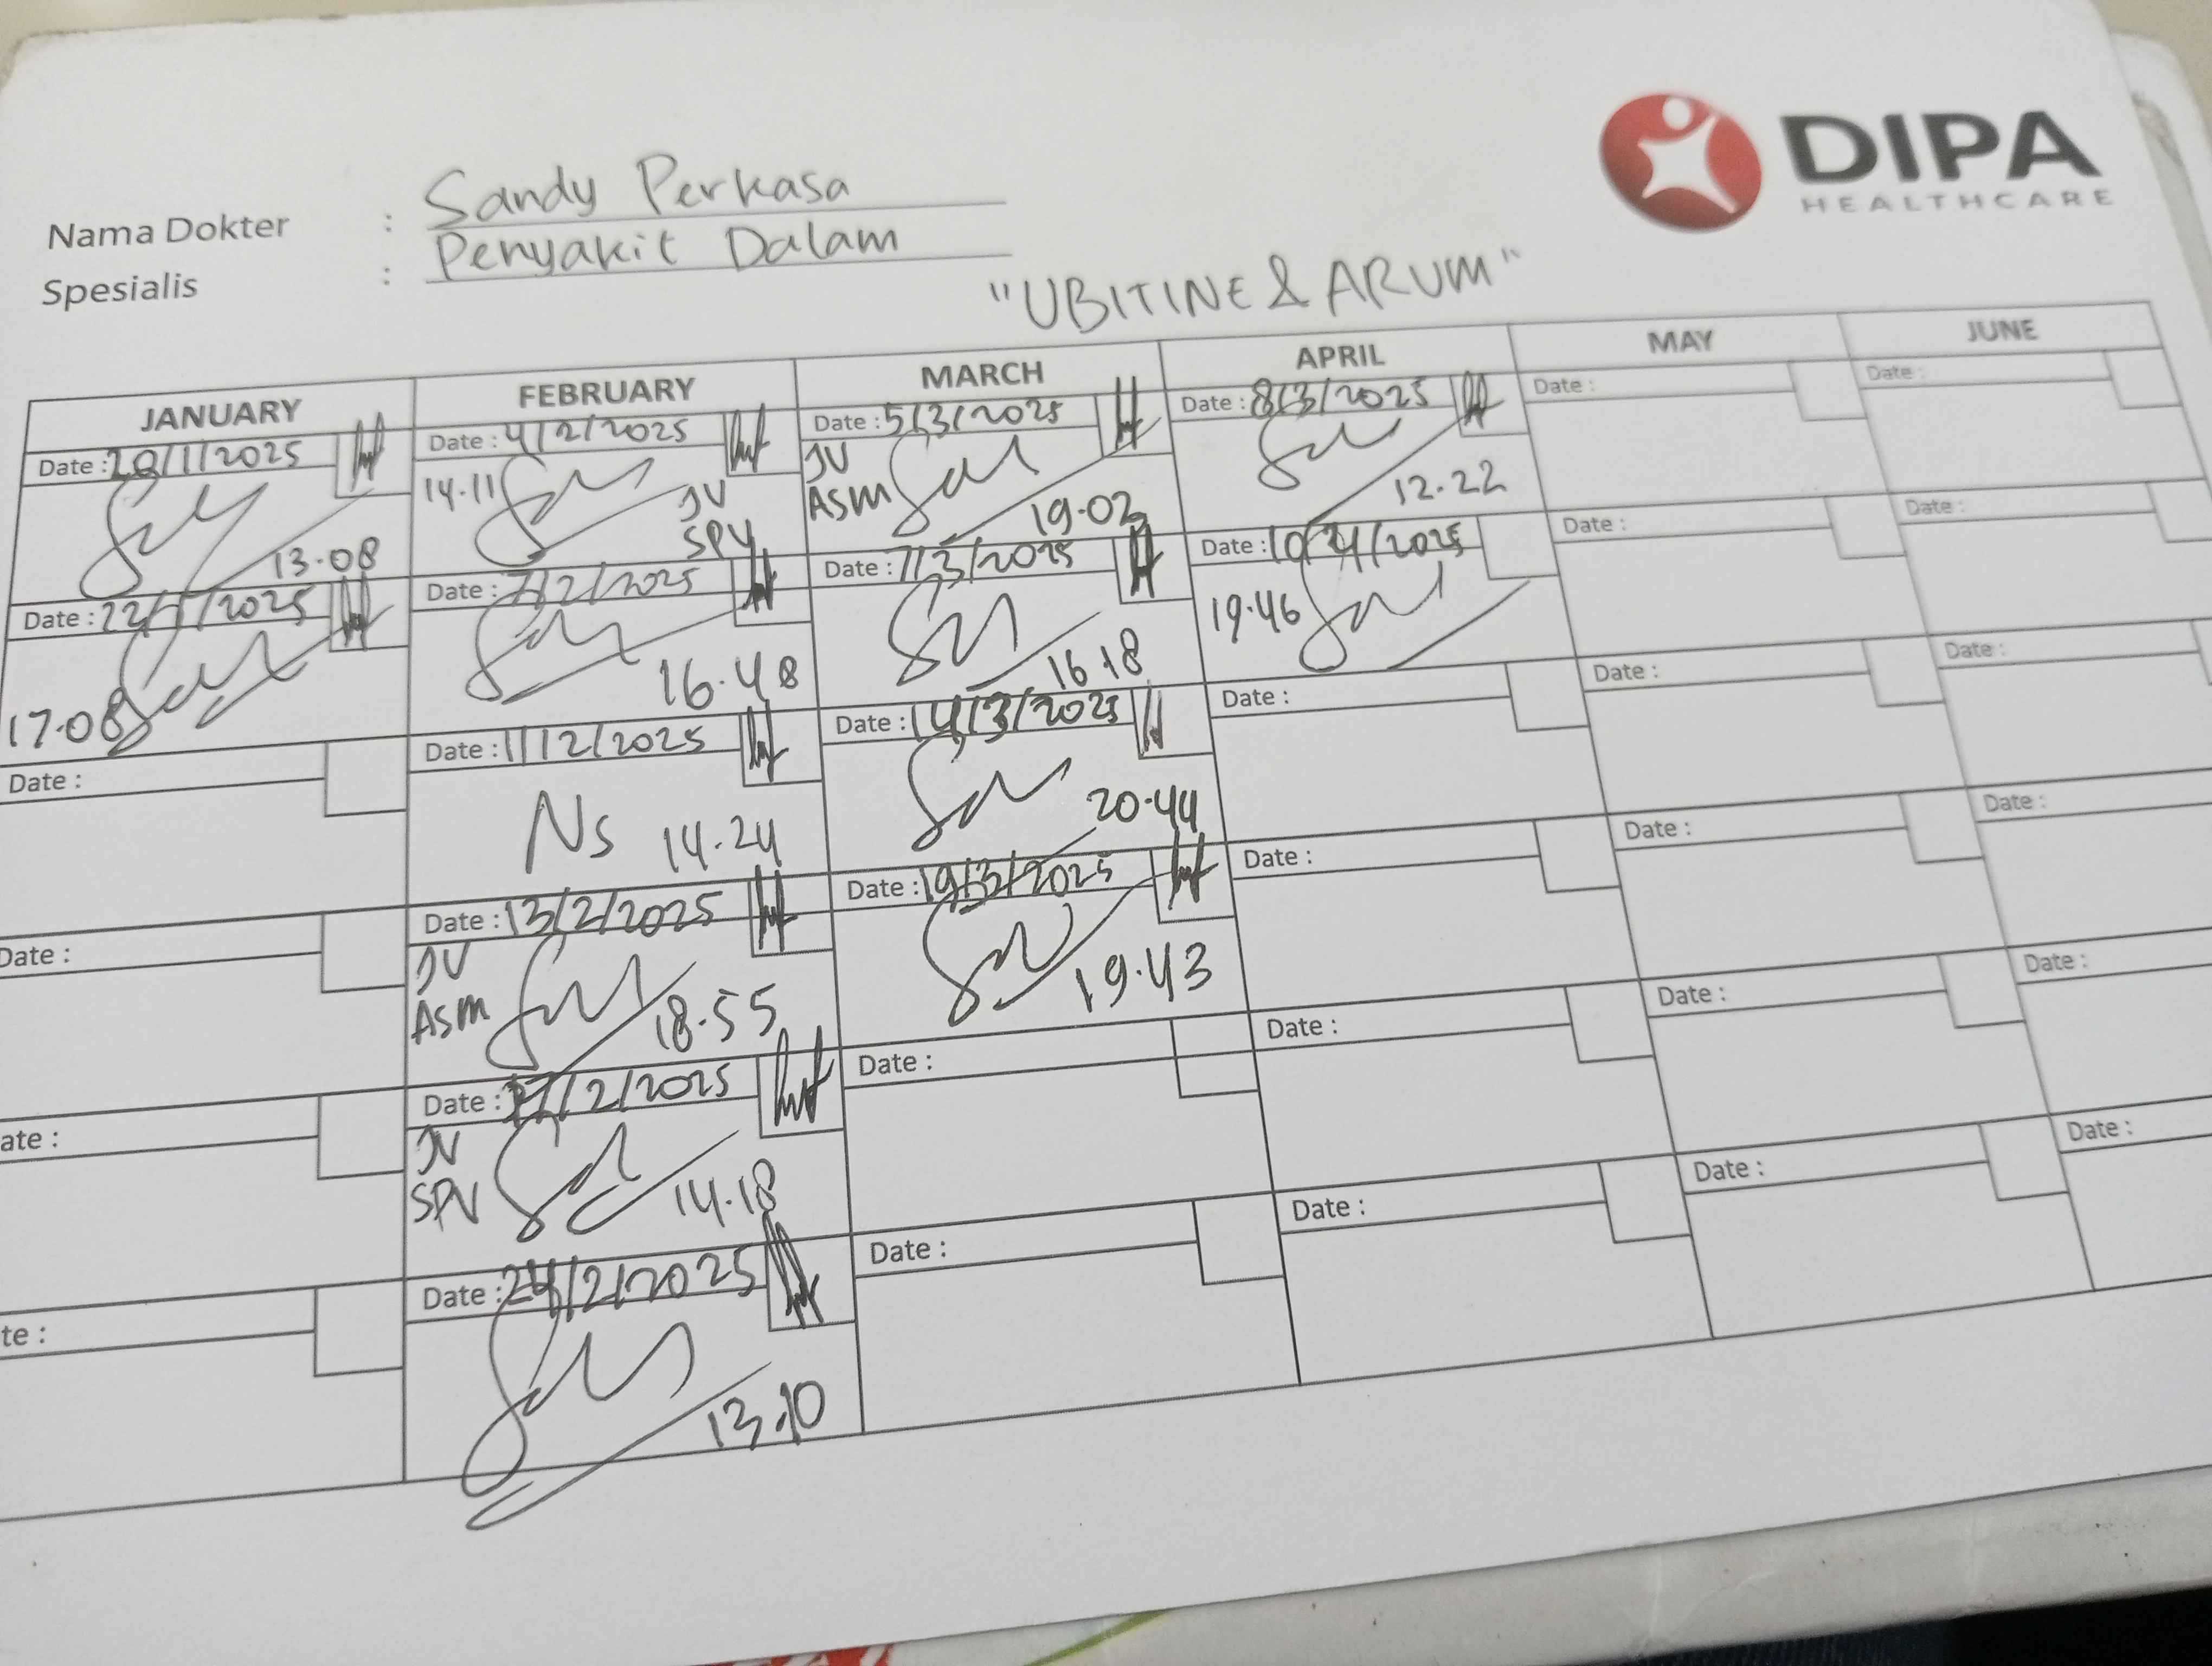 DIPA
HEALTHCARE
Nama Dokter : Sandy Perkasa
Spesialis : Penyakit Dalam
"UBITINE & ARUM"
JANUARY FEBRUARY MARCH APRIL MAY JUNE
Date : 20/1/2025 Date : 4/2/2025 Date : 5/3/2025 Date : 8/3/2025 Date : Date :
13.08 14.11 JV SPV JV ASM 19.02 12.22
Date : 22/1/2025 Date : 7/2/2025 Date : 7/3/2025 Date : 10/4/2025 Date : Date :
17.08 16.48 16.18 19.46
Date : Date : 11/2/2025 Date : 14/3/2025 Date : Date : Date :
Ns 14.24 20.44
Date : Date : 13/2/2025 Date : 19/3/2025 Date : Date : Date :
JV ASM 18.55 19.43
ate : Date : 17/2/2025 Date : Date : Date : Date :
JV SPV 14.18
te : Date : 24/2/2025 Date : Date : Date : Date :
13.10